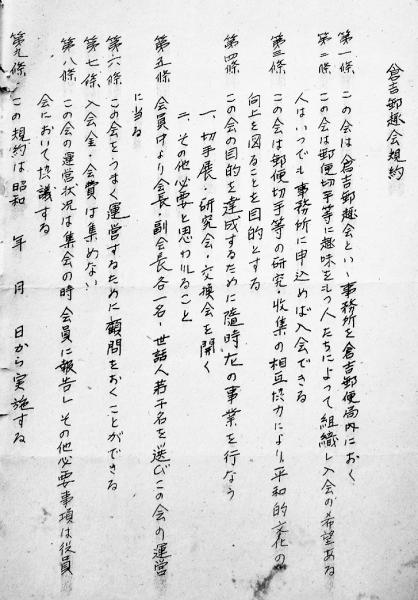 倉吉郵趣会規約
第一條 この会は倉吉郵趣会といい事務所を倉吉郵便局内におく
第二條 この会は郵便切手等に趣味をもつ人たちによって組織し入会の希望ある
人はいつでも事務所に申込めば入会できる
第三條 この会は郵便切手等の研究・収集の相互協力により平和的文化の
向上を図ることを目的とする
第四條 この会の目的を達成するために随時左の事業を行なう
一、切手展・研究会・交換会を開く
二、その他必要と思われること
第五條 会員中より会長・副会長各一名・世話人若干名を選びこの会の運営
に当る
第六條 この会をうまく運営するために顧問をおくことができる
第七條 入会金・会費は集めない
第八條 この会の運営状況は集会の時会員に報告しその他必要事項は役員
会において協議する
第九條 この規約は昭和 年 月 日から実施する